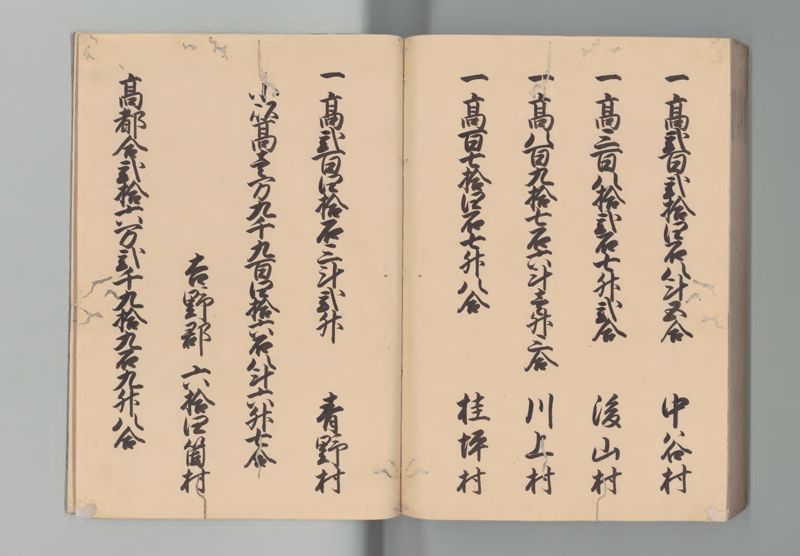 一高弐百弐拾四石八斗五合 中谷村
一高三百八拾弐石七升弐合 後山村
一高八百九拾七石六斗壱升三合 川上村
一高百七拾四石七升八合 桂坪村
一高弐百四拾石三斗弐升 青野村
小以高壱万九千九百四拾六石八斗六升七合
吉野郡 六拾四箇村
高都合弐拾六万弐千九拾九石九升八合